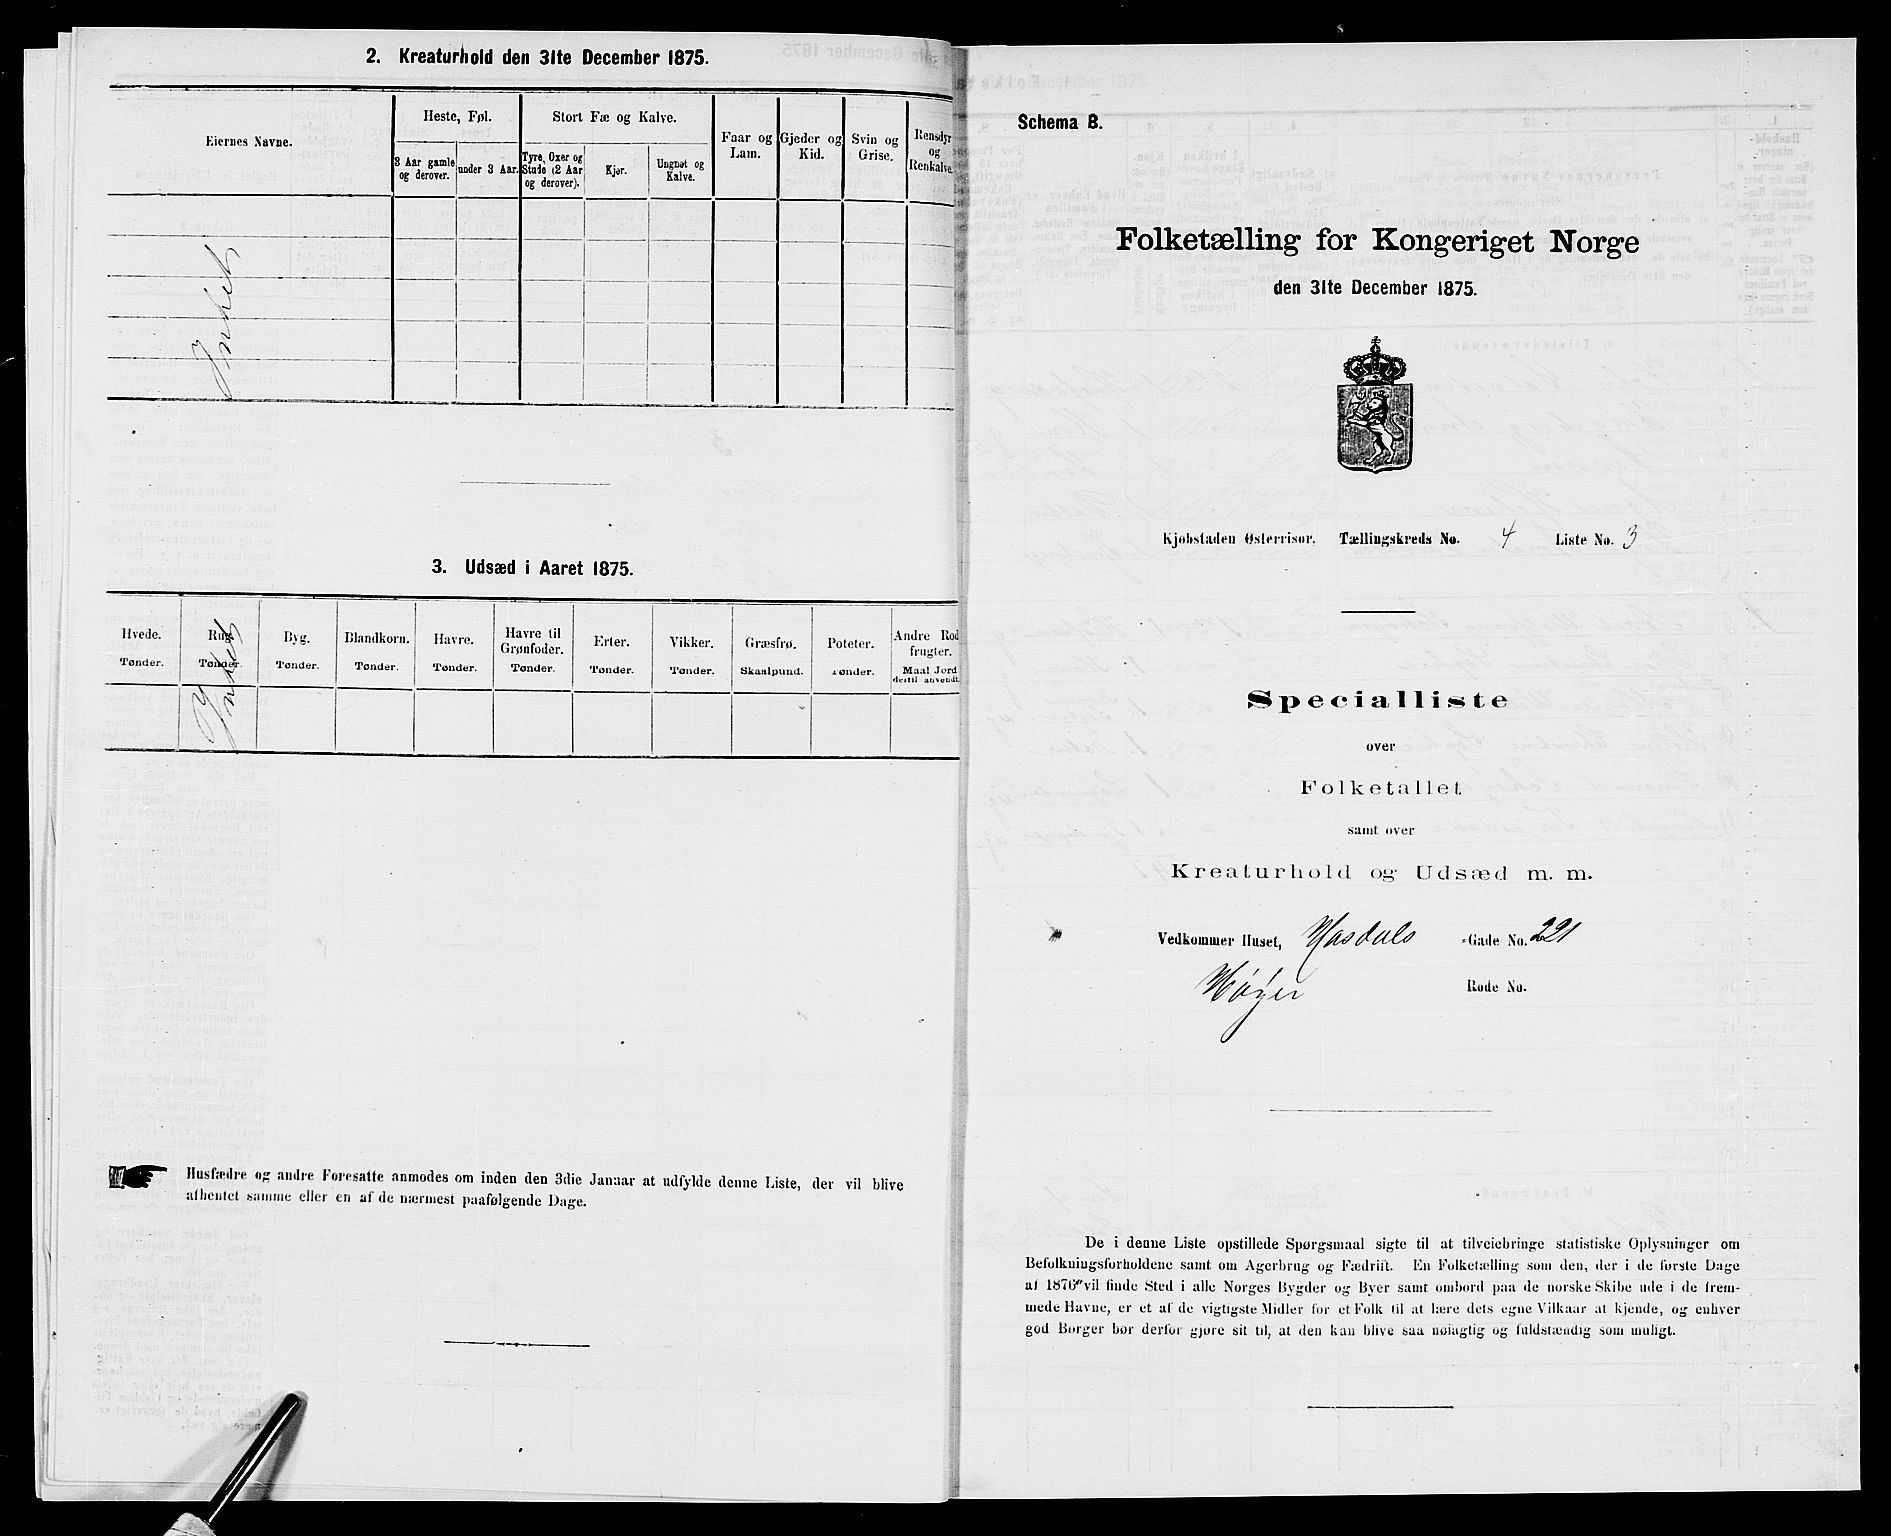 2. Kreaturhold den 31te December 1875.
Eiernes Navne.
Heste, Føl.
Stort Fæ og Kalve.
Faar og Lam.
Gjeder og Kid.
Svin og Grise.
Rensdyr og Renkalve.
3 Aar gamle og derover.
under 3 Aar.
Tyre, Oxer og Stude (2 Aar og derover).
Kjør.
Ungnøt og Kalve.
Intet
3. Udsæd i Aaret 1875.
Hvede. Tønder.
Rug. Tønder.
Byg. Tønder.
Blandkorn. Tønder.
Havre. Tønder.
Havre til Grønfoder. Tønder.
Erter. Tønder.
Vikker. Tønder.
Græsfrø. Skaalpund.
Poteter. Tønder.
Andre Rodfrugter. Maal Jord dertil anvendt.
Intet
Husfædre og andre Foresatte anmodes om inden den 3die Januar at udfylde denne Liste, der vil blive
afhentet samme eller en af de nærmest paafølgende Dage.
Schema B.
Folketælling for Kongeriget Norge
den 31te December 1875.
Kjøbstaden Østerrisør. Tællingskreds No. 4 Liste No. 3
Specialliste
over
Folketallet
samt over
Kreaturhold og Udsæd m. m.
Vedkommer Huset, Hasdals Gade No. 221
Høyer Rode No.
De i denne Liste opstillede Spørgsmaal sigte til at tilveiebringe statistiske Oplysninger om
Befolkningsforholdene samt om Agerbrug og Fædrift. En Folketælling som den, der i de første Dage
af 1876 vil finde Sted i alle Norges Bygder og Byer samt ombord paa de norske Skibe ude i de frem-
mede Havne, er et af de vigtigste Midler for et Folk til at lære dets egne Vilkaar at kjende, og enhver
god Borger bør derfor gjøre sit til, at den kan blive saa nøiagtig og fuldstændig som muligt.